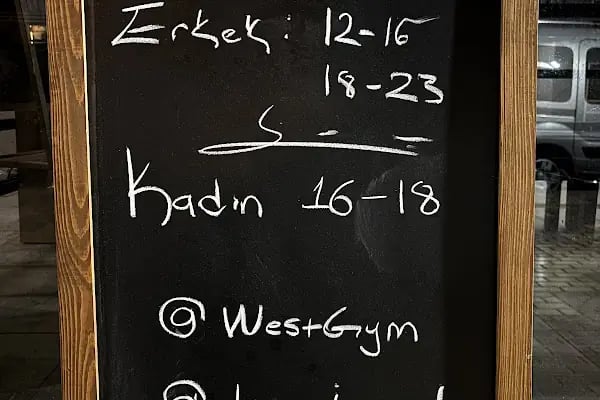 Erkek: 12-16
18-23
Kadın 16-18
@WestGym